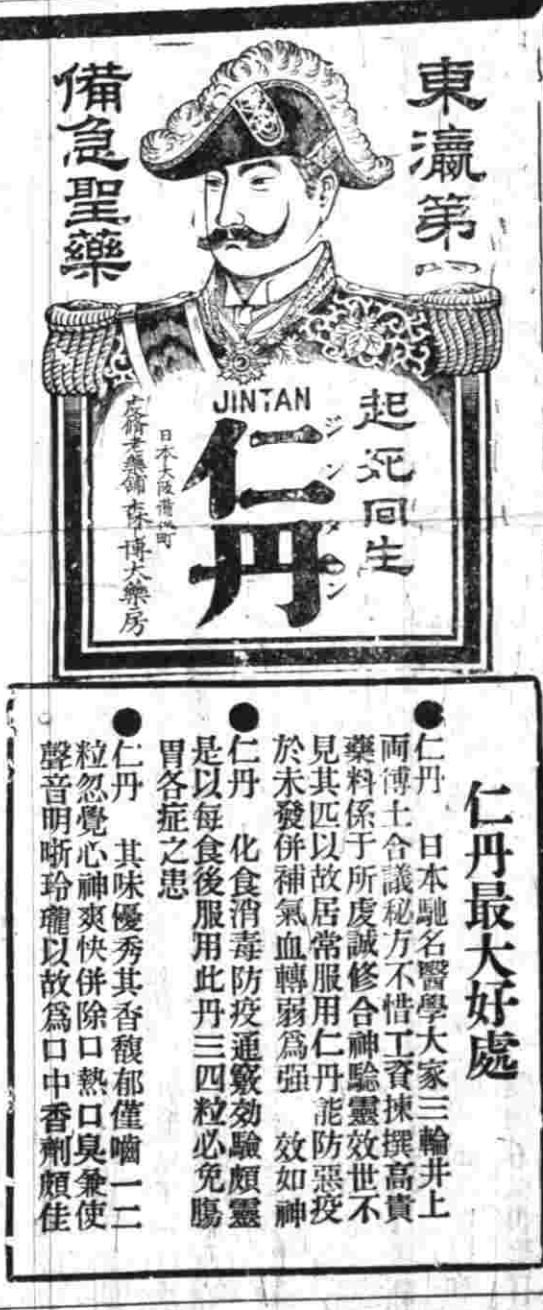 東瀛第一
備急聖藥
起死回生
JINTAN
仁丹
ジンタン
日本大阪備後町
老藥鋪 森博大藥房
仁丹最大好處
●仁丹 日本馳名醫學大家三輪井上
両博士合議秘方不惜工資揀撰高貴
藥料係于所虔誠修合神驗靈效世不
見其匹以故居常服用仁丹能防惡疫
於未發併補氣血轉弱爲强 效如神
●仁丹 化食消毒防疫通竅効驗頗靈
是以每食後服用此丹三四粒必免腸
胃各症之患
●仁丹 其味優秀其香馥郁僅嚙一二
粒忽覺心神爽快併除口熱口臭兼使
聲音明晰玲瓏以故爲口中香劑頗佳